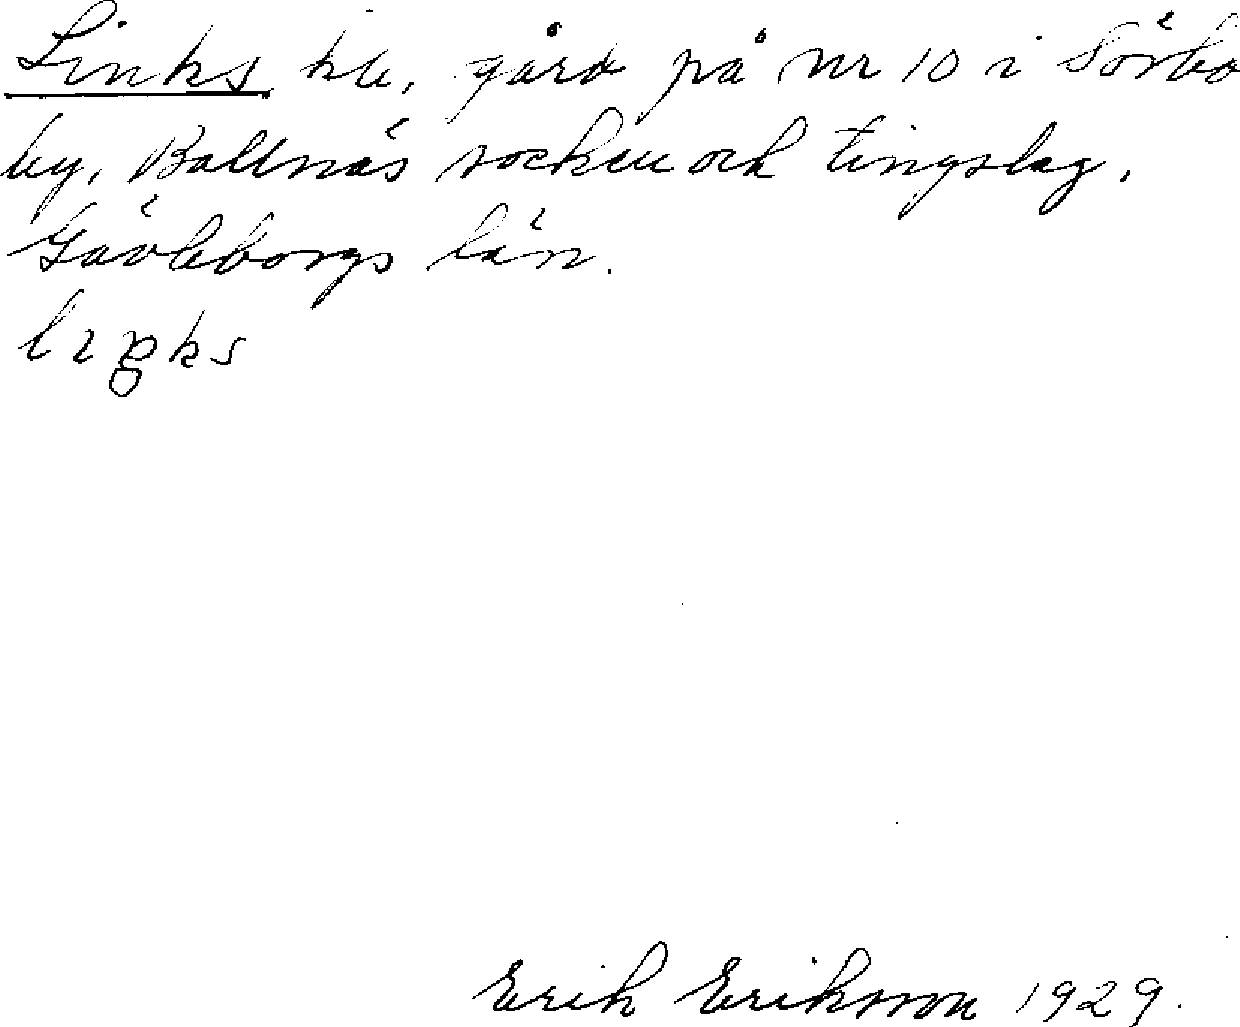 Links hle, gård på Nr 10 i Sörbo
by, Bollnäs socken och tingslag,
Gävleborgs län.
Erik Eriksson 1929.